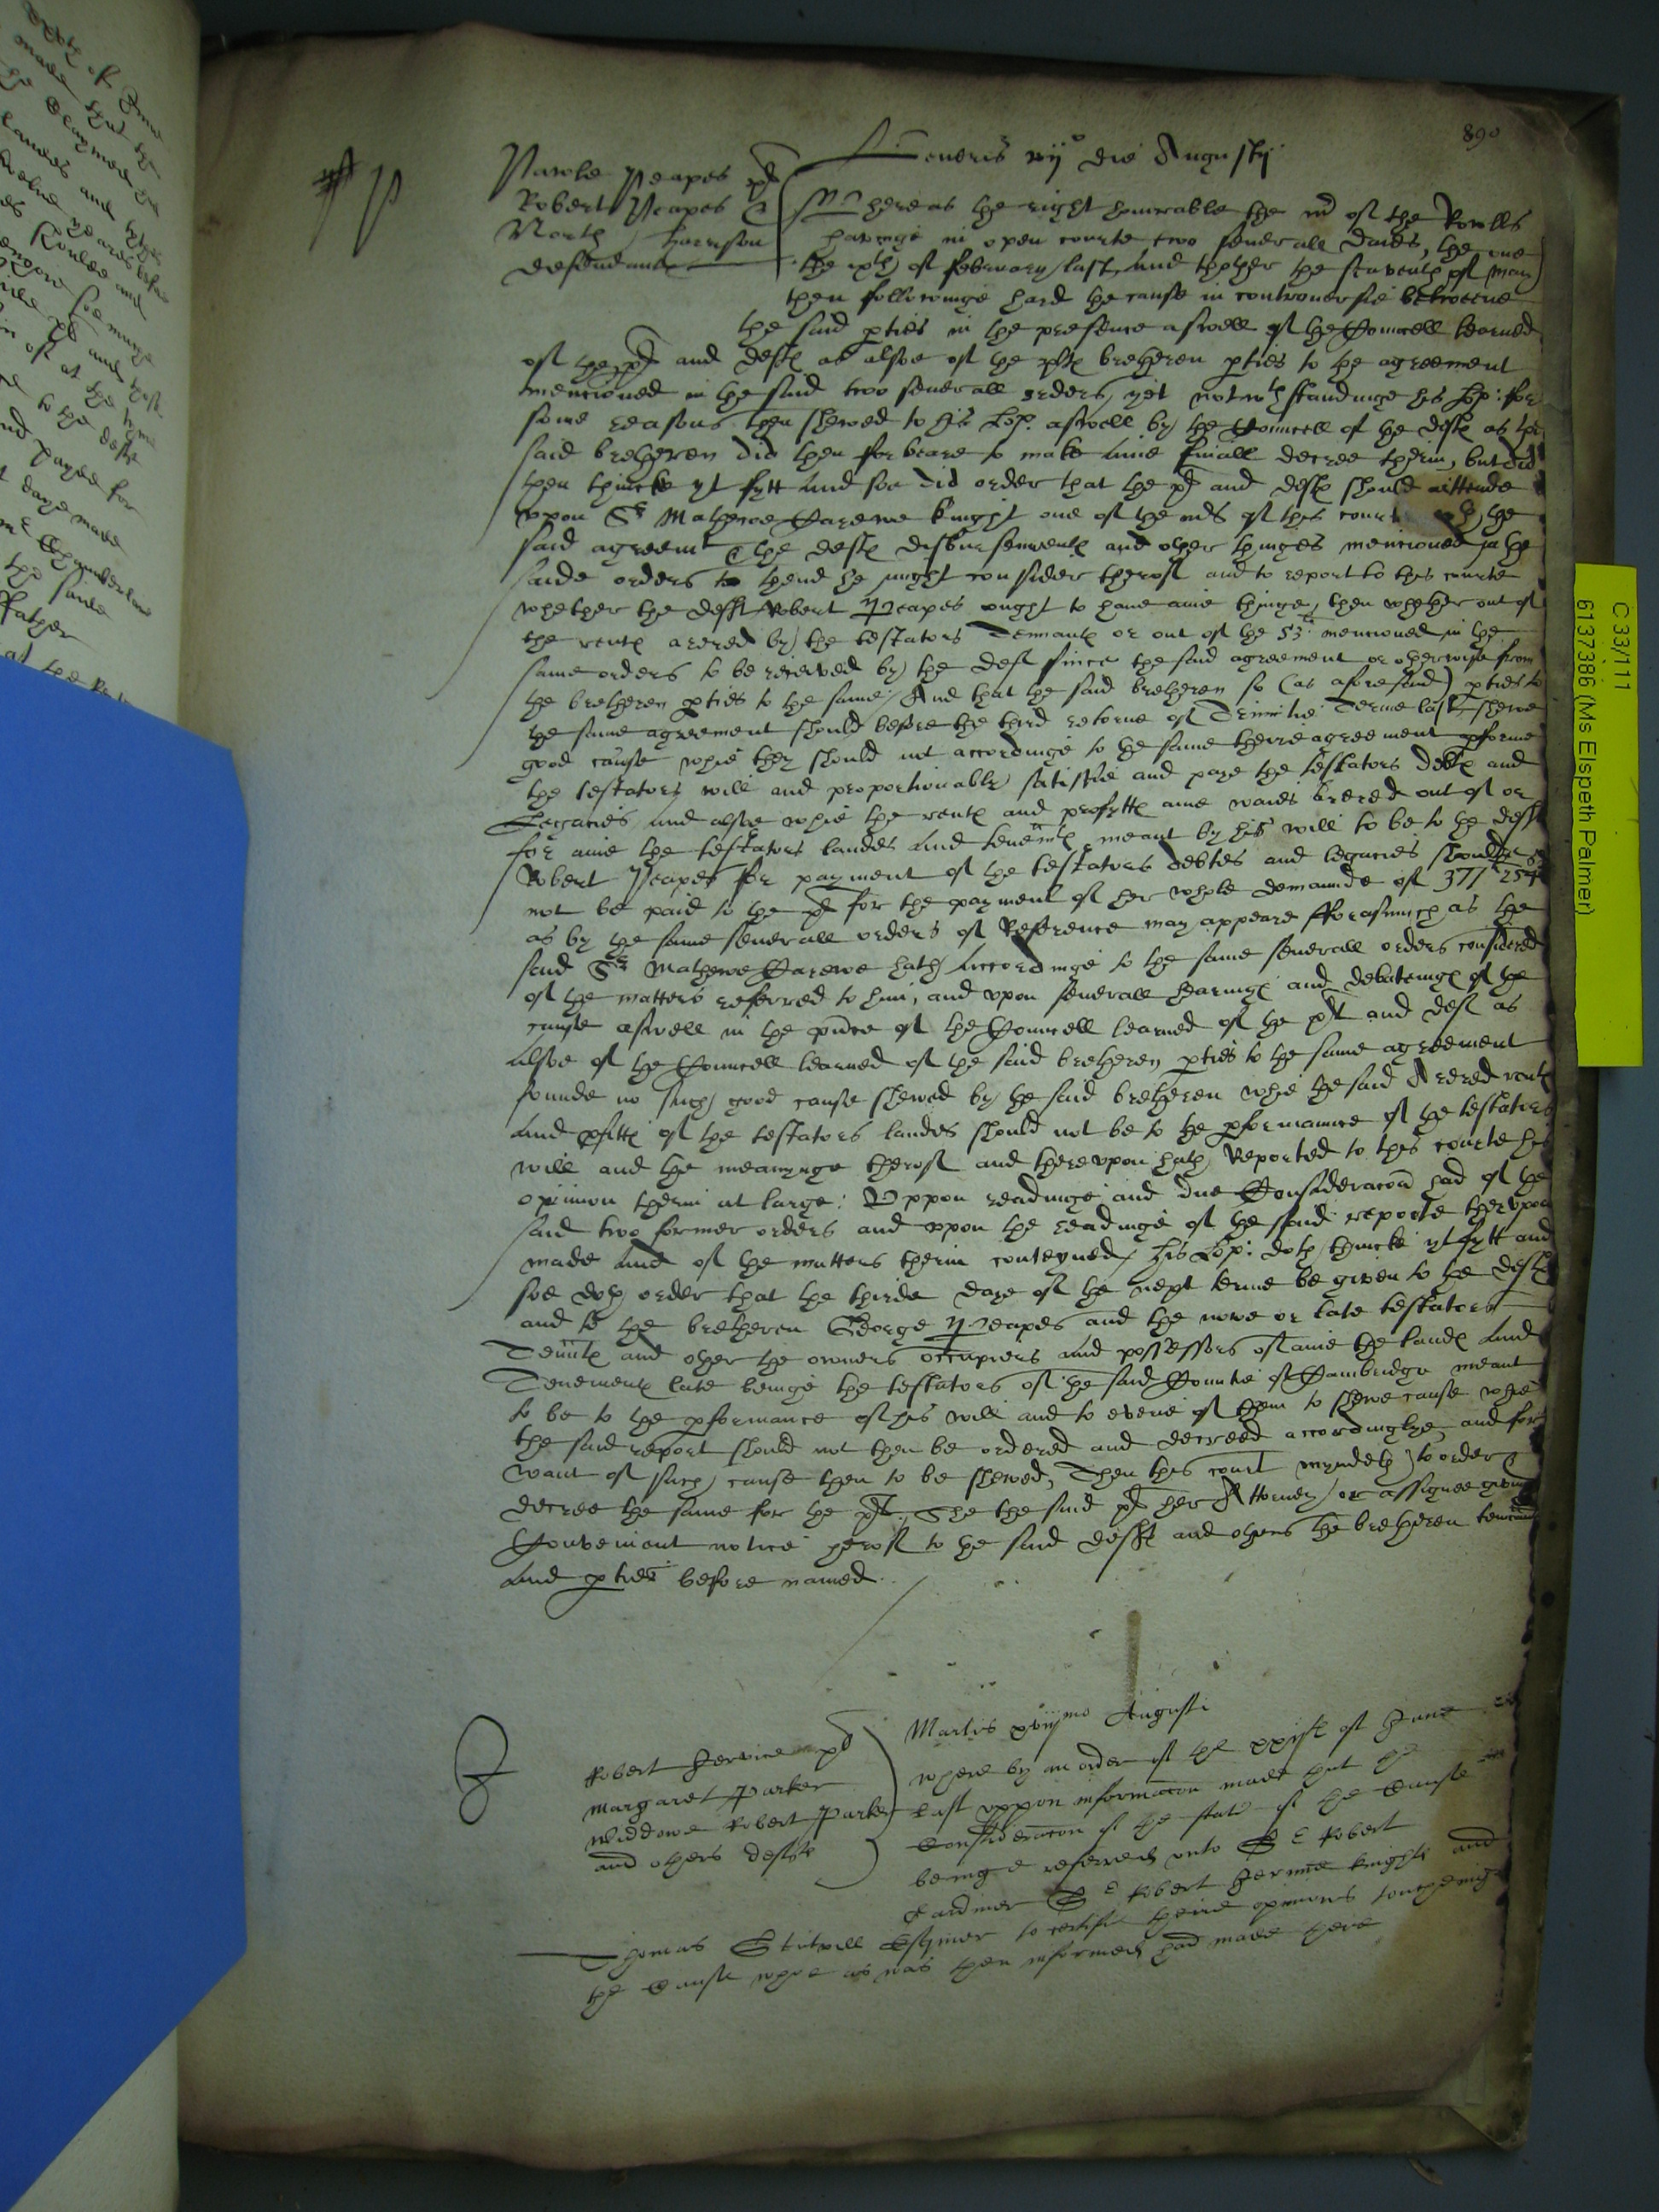 890
Veneris xij° die Augusty
Pawle Peapes pl
Robert Peapes &
North Harrison
defendantes
Whereas the right honorable the mr of the Rowlls
havinge in open courte two severall daies, the one
the xth of february last and thother the seaventh of May
then followinge hard the cause in controversie betweene
the said pties in the presence aswell of the Councell learned
of the pl and deftes as alsoe of the bretheren pties to the agreement
mencioned in the said two severall orders, yet notwthstandinge his Lop: for
some reasons then shewed to his Lop. aswell by the Councell of the deftes as the
said bretheren did then forbeare to make anie finall decree therin, but did
then thincke yt fytt and soe did order that the pl and deftes should attende
vpon Sr Mathewe Carewe knight one of the mrs of this court wth the
said agreemt & the deftes disbursementes and other thinges mencioned in the
saide orders to thend he might consider therof and to report to this courte
whether the deft Robert Peapes ought to have anie thinge, then whether out of
the rentes arered by the testators Tennantes or out of the 53li mencioned in the
same orders to be receaved by the deft since the said agreement or otherwise from
the bretheren pties to the same; And that the said bretheren so (as aforesaid) pties to
the same agreement should before the third retorne of Trinitie Terme last shewe
good cause whie they should not accordinge to the same theire agreement pforme
the testators will and proportionablie satisfie and paye the testators debtes and
Legacies and alsoe whie the rentes and profyttes anie waies arered out of or
for anie the testators landes and tenemtes meant by his will to be to the deft
Robert Peapes for payment of the testators debtes and legacies should
not be paid to the pl for the payment of her whole demaunde of 377
as by the same severall orders of Reference may appeare fforasmuch as the
said Sr Mathewe Carewe hath accordinge to the same severall orders considered
of the matters referred to him, and vpon severall hearinges and debatinges of the
cause aswell in the pnce of the Councell learned of the plt and deft as
alsoe of the Councell learned of the said bretheren pties to the same agreement
founde no such good cause shewed by the said bretheren whie the said Arered rentes
and pfittes of the testators landes should not be to the pformaunce of the testators
will and the meanynge therof and therevpon hath Reported to this courte his
opinion therin at large: Vppon readinge and due Consideracon had of the
said two former orders and vpon the readinge of the said reporte thervpon
made and of the matters therin conteyned, his Lop: doth thincke yt fytt and
soe doth order that the thirde daye of the next terme be given to the deftes
and to the bretheren George Peapes and the nowe or late testators
Tenntes and other the owners occupiers and possessors of anie the landes and
Tenementes late beinge the testators of the said Countie of Cambridge meant
to be to the pformance of his will and to everie of them to shewe cause whie
the said report should not then be ordered and decreed accordinglye, and for
want of such cause then to be shewed, Then this court myndeth to order &
decree the same for the plt, She the said pl her Attorney or assignee givinge
Convenient notice herof to the said deftes and others the bretheren
and pties before named.
Martis Augusti
Robert pl
Margaret Parker
Widdowe Robert Parker
and others deftes
where by an order of the xxjst of June
last vppon informacon made that the
Consideracon of the state of the Cause
beinge referred vnto Sr Robert
Gardiner Sr Robert Jermine knightes and
Thomas Stutvill Esquier to certifie theire opinions touchinge
the Cause whoe as was then informed had made there
C 33/111
6137386 (Ms Elspeth Palmer)